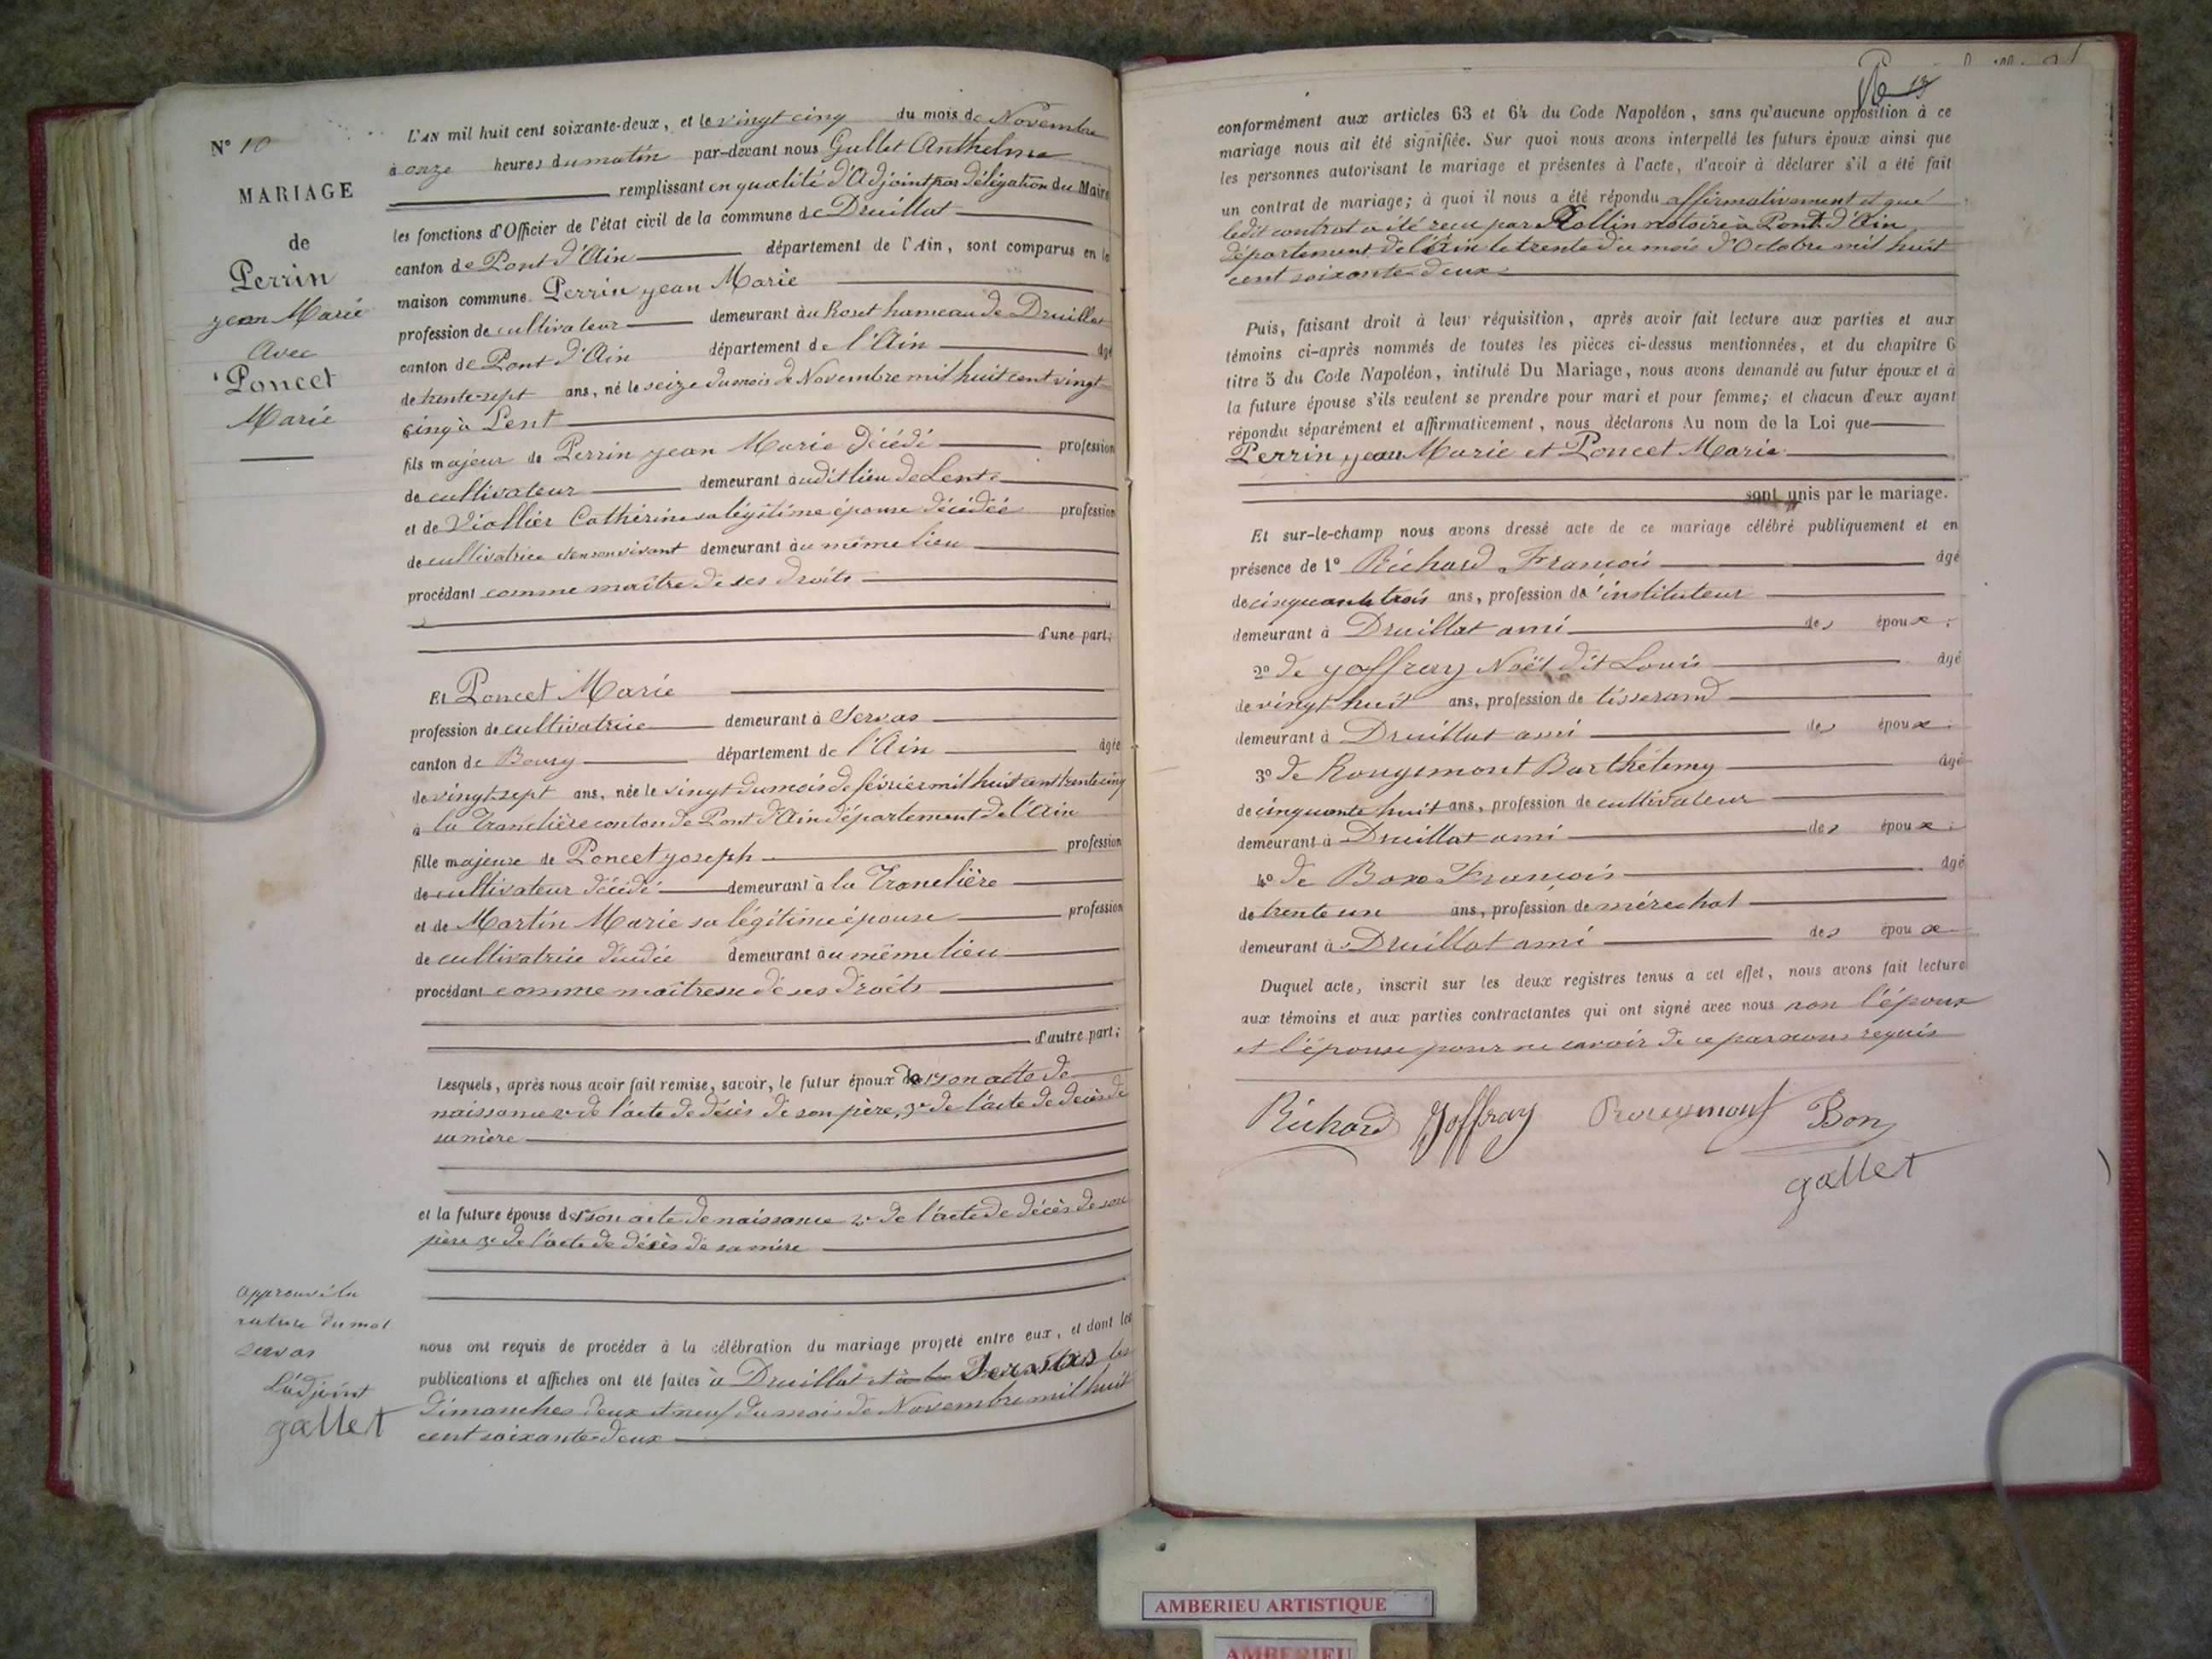 N° 10
MARIAGE
de
Perrin
jean Marie
Avec
Poncet
Marie
L'AN mil huit cent soixante-deux, et le vingt cinq du mois de Novembre
à onze heures du matin par-devant nous Gallet Anthelme
remplissant en qualité d'Adjoint par délégation du Maire
les fonctions d'Officier de l'état civil de la commune de Druillat
canton de Pont d'Ain département de l'Ain, sont comparus en la
maison commune Perrin jean Marie
profession de cultivateur demeurant au Roset hameau de Druillat
canton de Pont d'Ain département de l'Ain âgé
de trente-sept ans, né le seize du mois de Novembre mil huit cent vingt
cinq à Lent
fils majeur de Perrin jean Marie décédé profession
de cultivateur demeurant audit lieu de Lent
et de Viollier Catherine sa légitime épouse décédée profession
de cultivatrice de son vivant demeurant au même lieu
procédant comme maître de ses droits
d'une part;
Et Poncet Marie
profession de cultivatrice demeurant à Servas
canton de Bourg département de l'Ain âgée
de vingt-sept ans, née le vingt du mois de février mil huit cent trente cinq
à la Tranclière canton de Pont d'Ain département de l'Ain
fille majeure de Poncet joseph profession
de cultivateur décédé demeurant à la Tranclière
et de Martin Marie sa légitime épouse profession
de cultivatrice décédée demeurant au même lieu
procédant comme maîtresse de ses droits
d'autre part;
Lesquels, après nous avoir fait remise, savoir, le futur époux de 1° son acte de
naissance 2° de l'acte de décès de son père, 3° de l'acte de décès de
sa mère
et la future épouse de 1° son acte de naissance 2° de l'acte de décès de son
père 3° de l'acte de décès de sa mère
nous ont requis de procéder à la célébration du mariage projeté entre eux, et dont les
publications et affiches ont été faites à Druillat et à la Servas les
dimanches deux et neuf du mois de Novembre mil huit
cent soixante-deux
approuvé la
rature du mot
servas
L'adjoint
gallet
conformément aux articles 63 et 64 du Code Napoléon, sans qu'aucune opposition à ce
mariage nous ait été signifiée. Sur quoi nous avons interpellé les futurs époux ainsi que
les personnes autorisant le mariage et présentes à l'acte, d'avoir à déclarer s'il a été fait
un contrat de mariage; à quoi il nous a été répondu affirmativement et que
ledit contrat a été reçu par Rollin notaire à Pont d'Ain
département de l'Ain le trente du mois d'Octobre mil huit
cent soixante-deux
Puis, faisant droit à leur réquisition, après avoir fait lecture aux parties et aux
témoins ci-après nommés de toutes les pièces ci-dessus mentionnées, et du chapitre 6
titre 5 du Code Napoléon, intitulé Du Mariage, nous avons demandé au futur époux et à
la future épouse s'ils veulent se prendre pour mari et pour femme; et chacun d'eux ayant
répondu séparément et affirmativement, nous déclarons Au nom de la Loi que
Perrin jean Marie et Poncet Marie
sont unis par le mariage.
Et sur-le-champ nous avons dressé acte de ce mariage célébré publiquement et en
présence de 1° Richard François âgé
de cinquante trois ans, profession d'instituteur
demeurant à Druillat ami des époux;
2° de joffray Noël dit Louis âgé
de vingt huit ans, profession de tisserand
demeurant à Druillat ami des époux;
3° de Rougemont Barthélemy âgé
de cinquante huit ans, profession de cultivateur
demeurant à Druillat ami des époux;
4° de Bon François âgé
de trente un ans, profession de méréchal
demeurant à Druillat ami des époux
Duquel acte, inscrit sur les deux registres tenus à cet effet, nous avons fait lecture
aux témoins et aux parties contractantes qui ont signé avec nous non l'époux
et l'épouse pour ne savoir de ce par nous requis
Richard Joffray Rougemont Bon
gallet
AMBERIEU ARTISTIQUE
AMBERIEU